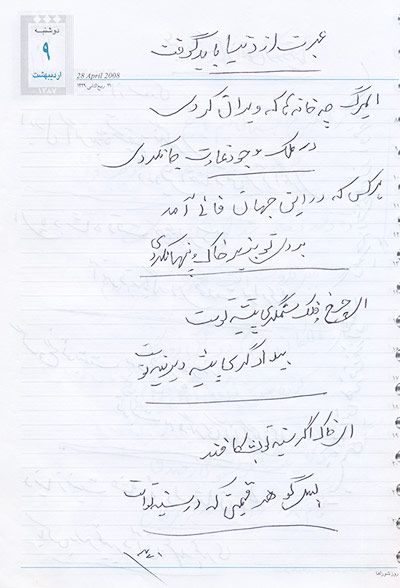 دوشنبه
۹
اردیبهشت
۱۳۸۷
28 April 2008
۲۱ ربیع الثانی ۱۴۲۹
عبرت از دنیا باید گرفت
ای مرگ چه خانه ها که ویران کردی
در ملک وجود غارت جان کردی
هر کس که در این جهان فانی آمد
بردی تو بزیر خاک و پنهان کردی
ای چرخ و فلک ستمگری پیشه توست
بیدادگری پیشه دیرینه توست
ای خاک اگر سینه تو بشکافند
بس گوهر قیمتی که در سینه توست
روز شوراها